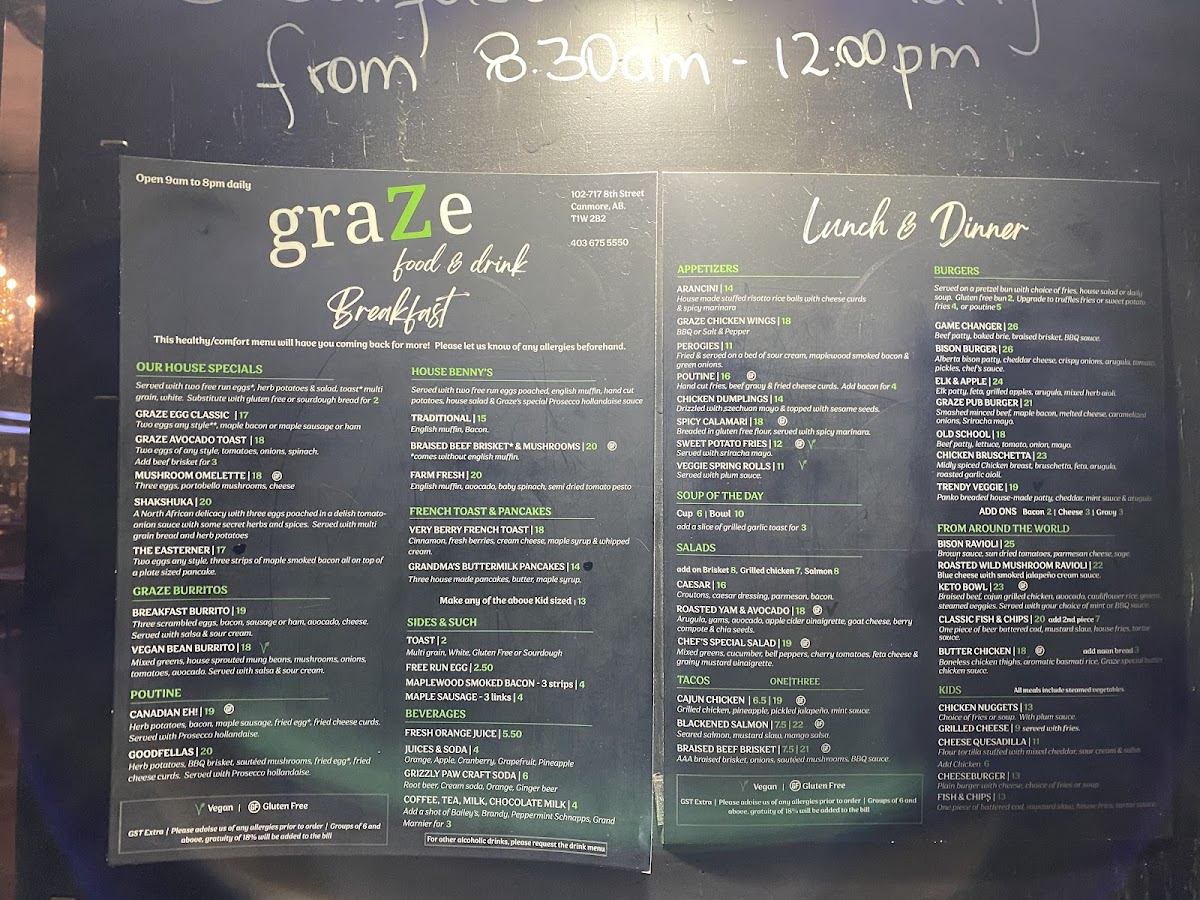 from 8.30am - 12:00pm
Open 9am to 8pm daily
graZe
food & drink
102-717 8th Street
Canmore, AB.
T1W 2B2
403 675 5550
Breakfast
This healthy/comfort menu will have you coming back for more! Please let us know of any allergies beforehand.
OUR HOUSE SPECIALS
Served with two free run eggs*, herb potatoes & salad, toast* multi
grain, white. Substitute with gluten free or sourdough bread for 2
GRAZE EGG CLASSIC | 17
Two eggs any style**, maple bacon or maple sausage or ham
GRAZE AVOCADO TOAST | 18
Two eggs of any style, tomatoes, onions, spinach.
Add beef brisket for 3
MUSHROOM OMELETTE | 18 GF
Three eggs, portobello mushrooms, cheese
SHAKSHUKA | 20
A North African delicacy with three eggs poached in a delish tomato-
onion sauce with some secret herbs and spices. Served with multi
grain bread and herb potatoes
THE EASTERNER | 17
Two eggs any style, three strips of maple smoked bacon all on top of
a plate sized pancake.
GRAZE BURRITOS
BREAKFAST BURRITO | 19
Three scrambled eggs, bacon, sausage or ham, avocado, cheese.
Served with salsa & sour cream.
VEGAN BEAN BURRITO | 18
Mixed greens, house sprouted mung beans, mushrooms, onions,
tomatoes, avocado. Served with salsa & sour cream.
POUTINE
CANADIAN EH! | 19 GF
Herb potatoes, bacon, maple sausage, fried egg*, fried cheese curds.
Served with Prosecco hollandaise.
GOODFELLAS | 20
Herb potatoes, BBQ brisket, sautéed mushrooms, fried egg*, fried
cheese curds. Served with Prosecco hollandaise.
Vegan | GF Gluten Free
GST Extra | Please advise us of any allergies prior to order | Groups of 6 and
above, gratuity of 18% will be added to the bill
HOUSE BENNY'S
Served with two free run eggs poached, english muffin, hand cut
potatoes, house salad & Graze's special Prosecco hollandaise sauce
TRADITIONAL | 15
English muffin, Bacon.
BRAISED BEEF BRISKET* & MUSHROOMS | 20 GF
*comes without english muffin.
FARM FRESH | 20
English muffin, avocado, baby spinach, semi dried tomato pesto
FRENCH TOAST & PANCAKES
VERY BERRY FRENCH TOAST | 18
Cinnamon, fresh berries, cream cheese, maple syrup & whipped
cream.
GRANDMA'S BUTTERMILK PANCAKES | 14
Three house made pancakes, butter, maple syrup.
Make any of the above Kid sized | 13
SIDES & SUCH
TOAST | 2
Multi grain, White, Gluten Free or Sourdough
FREE RUN EGG | 2.50
MAPLEWOOD SMOKED BACON - 3 strips | 4
MAPLE SAUSAGE - 3 links | 4
BEVERAGES
FRESH ORANGE JUICE | 5.50
JUICES & SODA | 4
Orange, Apple, Cranberry, Grapefruit, Pineapple
GRIZZLY PAW CRAFT SODA | 6
Root beer, Cream soda, Orange, Ginger beer
COFFEE, TEA, MILK, CHOCOLATE MILK | 4
Add a shot of Bailey's, Brandy, Peppermint Schnapps, Grand
Marnier for 3
For other alcoholic drinks, please request the drink menu
Lunch & Dinner
APPETIZERS
ARANCINI | 14
House made stuffed risotto rice balls with cheese curds
& spicy marinara
GRAZE CHICKEN WINGS | 18
BBQ or Salt & Pepper
PEROGIES | 11
Fried & served on a bed of sour cream, maplewood smoked bacon &
green onions.
POUTINE | 16 GF
Hand cut fries, beef gravy & fried cheese curds. Add bacon for 4
CHICKEN DUMPLINGS | 14
Drizzled with szechuan mayo & topped with sesame seeds.
SPICY CALAMARI | 18 GF
Breaded in gluten free flour, served with spicy marinara.
SWEET POTATO FRIES | 12 GF
Served with sriracha mayo.
VEGGIE SPRING ROLLS | 11
Served with plum sauce.
SOUP OF THE DAY
Cup 6 | Bowl 10
add a slice of grilled garlic toast for 3
SALADS
add on Brisket 8, Grilled chicken 7, Salmon 8
CAESAR | 16
Croutons, caesar dressing, parmesan, bacon.
ROASTED YAM & AVOCADO | 18 GF
Arugula, yams, avocado, apple cider vinaigrette, goat cheese, berry
compote & chia seeds.
CHEF'S SPECIAL SALAD | 19 GF
Mixed greens, cucumber, bell peppers, cherry tomatoes, feta cheese &
grainy mustard vinaigrette.
TACOS ONE|THREE
CAJUN CHICKEN | 6.5 | 19 GF
Grilled chicken, pineapple, pickled jalapeño, mint sauce.
BLACKENED SALMON | 7.5 | 22 GF
Seared salmon, mustard slaw, mango salsa.
BRAISED BEEF BRISKET | 7.5 | 21 GF
AAA braised brisket, onions, sautéed mushrooms, BBQ sauce.
Vegan | GF Gluten Free
GST Extra | Please advise us of any allergies prior to order | Groups of 6 and
above, gratuity of 18% will be added to the bill
BURGERS
Served on a pretzel bun with choice of fries, house salad or daily
soup. Gluten free bun 2. Upgrade to truffles fries or sweet potato
fries 4, or poutine 5
GAME CHANGER | 26
Beef patty, baked brie, braised brisket, BBQ sauce.
BISON BURGER | 26
Alberta bison patty, cheddar cheese, crispy onions, arugula, tomato,
pickles, chef's sauce.
ELK & APPLE | 24
Elk patty, feta, grilled apples, arugula, mixed herb aioli.
GRAZE PUB BURGER | 21
Smashed minced beef, maple bacon, melted cheese, caramelized
onions, Sriracha mayo.
OLD SCHOOL | 18
Beef patty, lettuce, tomato, onion, mayo.
CHICKEN BRUSCHETTA | 23
Midly spiced Chicken breast, bruschetta, feta, arugula,
roasted garlic aioli.
TRENDY VEGGIE | 19
Panko breaded house-made patty, cheddar, mint sauce & arugula
ADD ONS Bacon 2 | Cheese 3 | Gravy 3
FROM AROUND THE WORLD
BISON RAVIOLI | 25
Brown sauce, sun dried tomatoes, parmesan cheese, sage
ROASTED WILD MUSHROOM RAVIOLI | 22
Blue cheese with smoked jalapeño cream sauce.
KETO BOWL | 23 GF
Braised beef, cajun grilled chicken, avocado, cauliflower rice, greens,
steamed veggies. Served with your choice of mint or BBQ sauce.
CLASSIC FISH & CHIPS | 20 add 2nd piece 7
One piece of beer battered cod, mustard slaw, house fries, tartar
sauce.
BUTTER CHICKEN | 18 GF add naan bread 3
Boneless chicken thighs, aromatic basmati rice, Graze special butter
chicken sauce.
KIDS All meals include steamed vegetables.
CHICKEN NUGGETS | 13
Choice of fries or soup. With plum sauce.
GRILLED CHEESE | 9 served with fries.
CHEESE QUESADILLA | 11
Flour tortilla stuffed with mixed cheddar, sour cream & salsa
Add Chicken 6
CHEESEBURGER | 13
Plain burger with cheese, choice of fries or soup
FISH & CHIPS | 13
One piece of battered cod, mustard slaw, house fries, tartar sauce